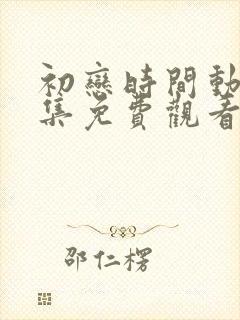 初戀時間動
集免費觀看
邵仁楞